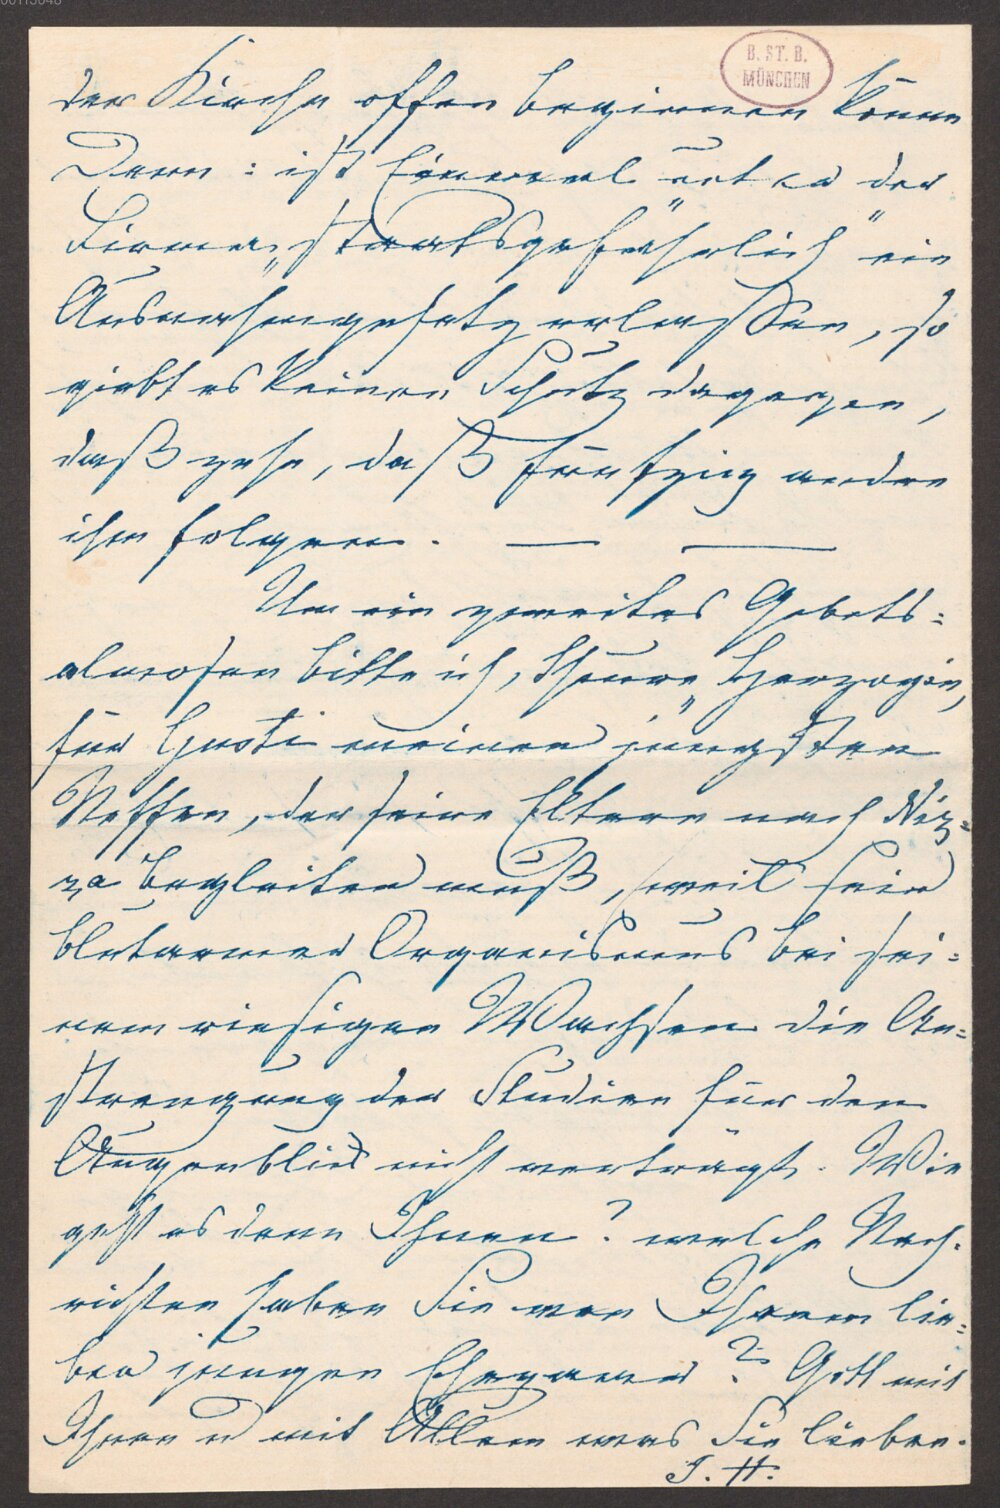 B. ST. B.
MÜNCHEN
der Kirche offen beginnen könne
Denn: ist Einmal unter der
Firma „staatsgefährlich" ein
Ausnahmgesetz erlassen, so
giebt es keinen Schutz dagegen,
daß zehn, daß fünfzig andre
ihm folgen. — —
Um ein zweites Gebets=
almosen bitte ich, theure Herzogin,
für Gusti meinen jüngsten
Neffen, der seine Eltern nach Niz=
za begleiten muß, weil sein
blutarmer Organismus bei sei=
nem riesigen Wachsen die An=
strengung der Studien für den
Augenblick nicht verträgt. Wie
geht es denn Ihnen? welche Nach=
richten haben Sie von Ihrem lie=
ben jungen Ehepaar? Gott mit
Ihnen u mit Allem was Sie lieben.
I. H.